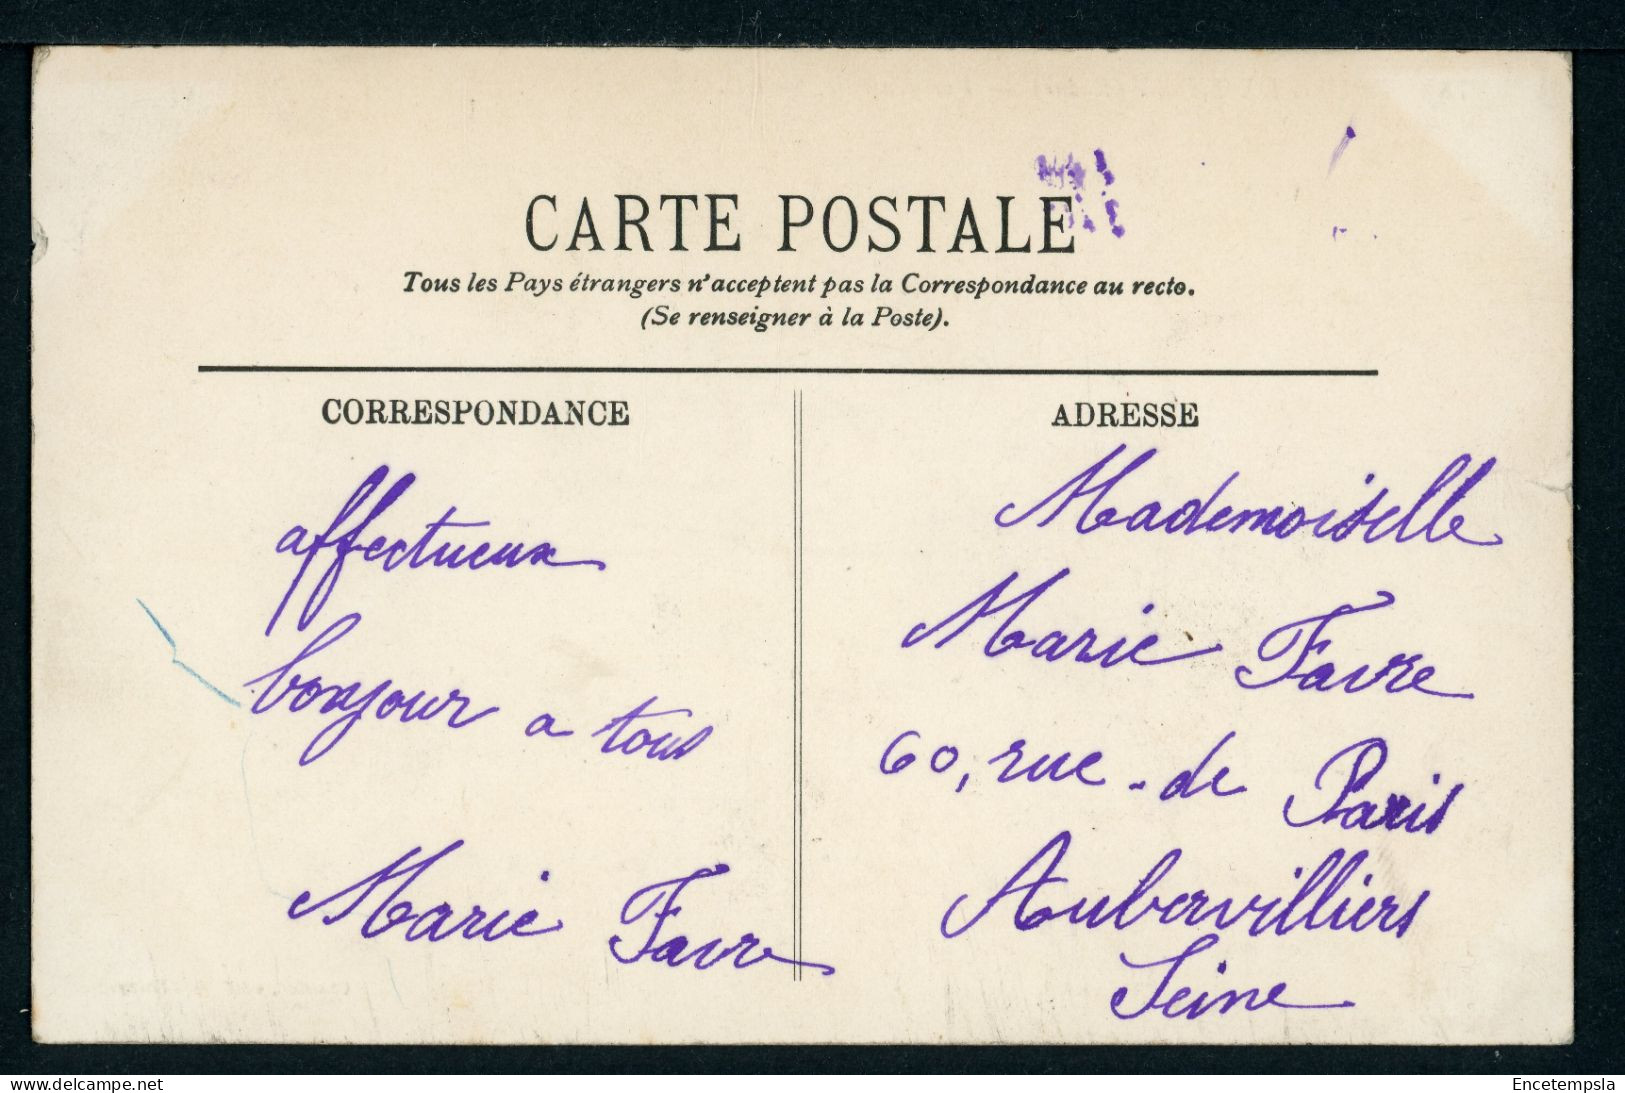 CARTE POSTALE
Tous les Pays étrangers n'acceptent pas la Correspondance au recto.
(Se renseigner à la Poste).
CORRESPONDANCE
affectueux
bonjour a tous
Marie Favre
ADRESSE
Mademoiselle
Marie Favre
60, rue de Paris
Aubervilliers
Seine
www.delcampe.net
Encetempsla